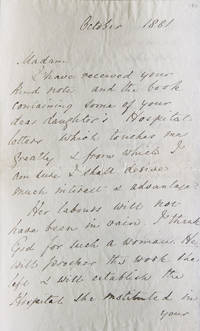 October 1881
Madam
I have received your
kind note and the book
containing some of your
dear daughter's Hospital
letters which touches me
greatly & from which I
am sure I shall derive
much interest & advantage.
Her labours will not
have been in vain. I thank
God for such a woman. He
will prosper the work she
& will establish the
Hospital she instituted in
your